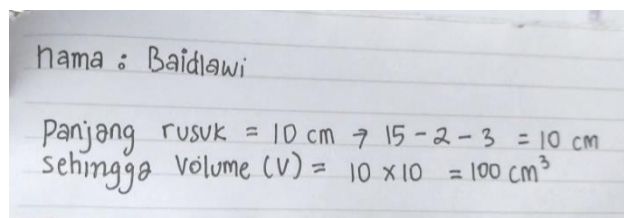 nama : Baidlawi
Panjang rusuk = 10 cm → 15 - 2 - 3 = 10 cm
sehingga Volume (V) = 10 x 10 = 100 cm³